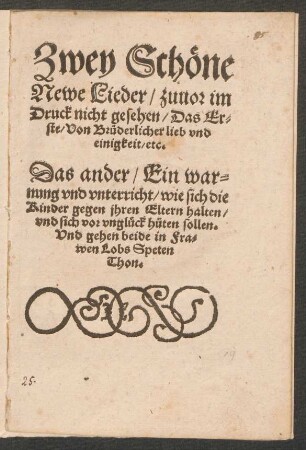 Zwey Schöne
Newe Lieder / zuuor im
Druck nicht gesehen / Das Er-
ste / Von Brüderlicher lieb vnd
einigkeit / etc.
Das ander / Ein war-
nung vnd vnterricht / wie sich die
Kinder gegen jhren Eltern halten /
vnd sich vor vnglück hüten sollen.
Vnd gehen beide in Fra-
wen Lobs Speten
Thon.
25.